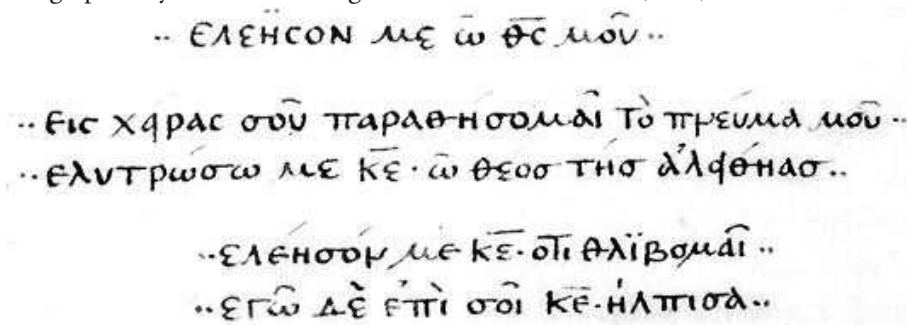 ·· ελεησον με ῶ θ̅ς̅ μοῦ ··
·· εις χειρας σοῦ παραθησομαῖ τὸ πνεύμα μοῦ ··
·· ελυτρώσω με κ̅ε̅· ῶ θεοσ τῆσ ἀλειθήνασ ··
·· ελέησόν με κ̅ε̅· οτῖ θλϊβομαῖ ··
·· εγῶ δὲ ἐπὶ σοῖ κ̅ε̅· ήλπισὰ ··